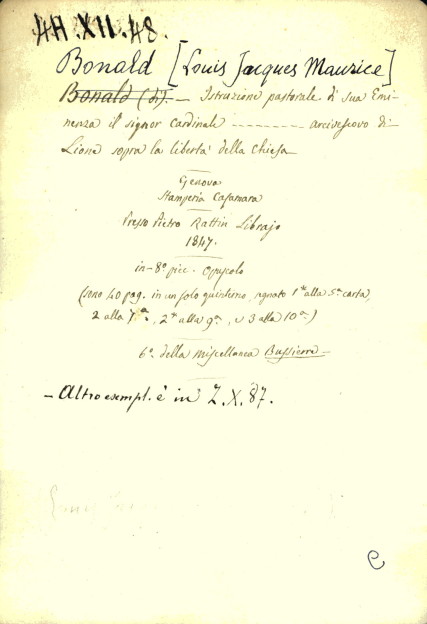 4A.XII.48.
Bonald [Louis Jacques Maurice]
Bonald (di). — Istruzione pastorale di sua Emi-
nenza il signor cardinale ---------- arcivescovo di
Lione sopra la libertà della chiesa
Genova
Stamperia Casamara
Presso Pietro Rattin Librajo
1847.
in-8º picc. opuscolo
(sono 40 pag. in un solo quinterno, segnato 1* alla 5ª carta,
2 alla 7ª, 2* alla 9ª, 3 alla 10ª)
6º. della miscellanea Bussierra —
— Altro esempl. è in Z.X.87.